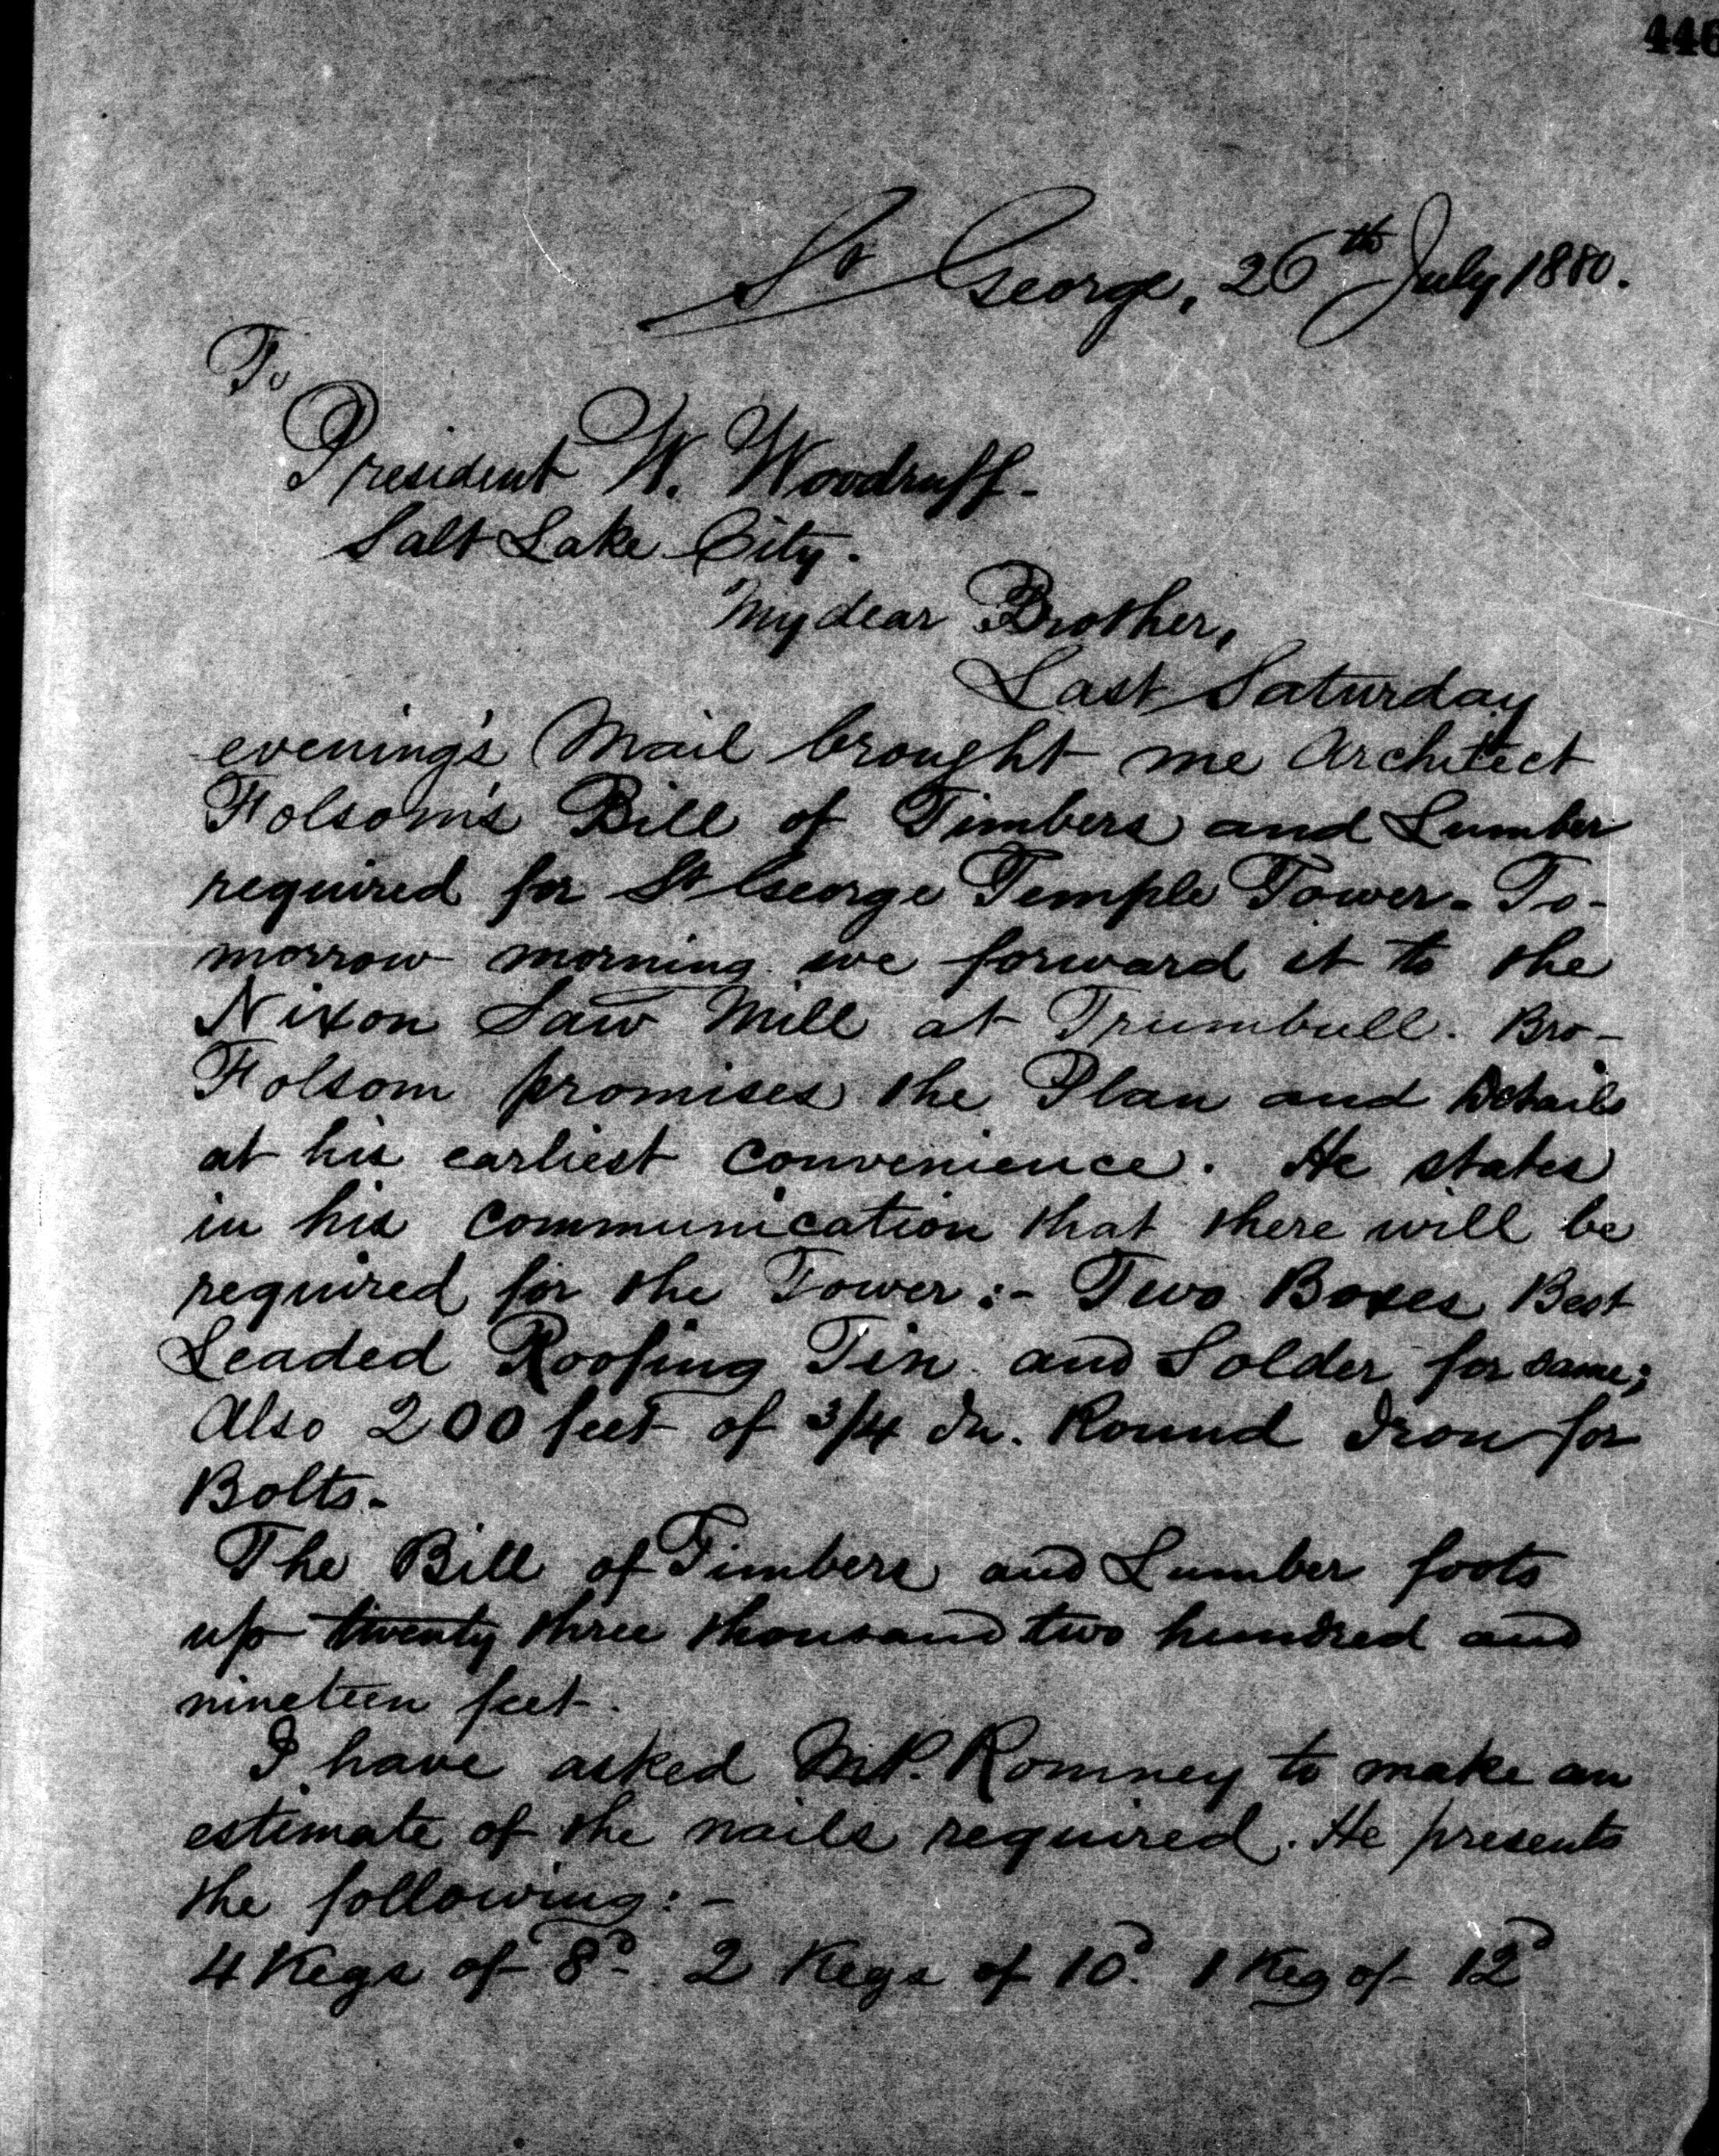 446
St George, 26th July 1880.
To
President W. Woodruff-
Salt Lake City.
My dear Brother,
Last Saturday
evening's Mail brought me Architect
Folsom's Bill of Timbers and Lumber
required for St George Temple Tower. To-
morrow morning we forward it to the
Nixon Saw Mill at Trumbull. Bro-
Folsom promises the Plan and Details
at his earliest convenience. He states
in his communication that there will be
required for the Tower:- Two Boxes Best
Leaded Roofing Tin and Solder for same;
Also 200 feet of 3/4 In. Round Iron for
Bolts.
The Bill of Timbers and Lumber foots
up twenty three thousand two hundred and
nineteen feet.
I have asked M.P. Romney to make an
estimate of the nails required. He presents
the following:-
4 Kegs of 8d. 2 Kegs of 10d. 1 Keg of 12d